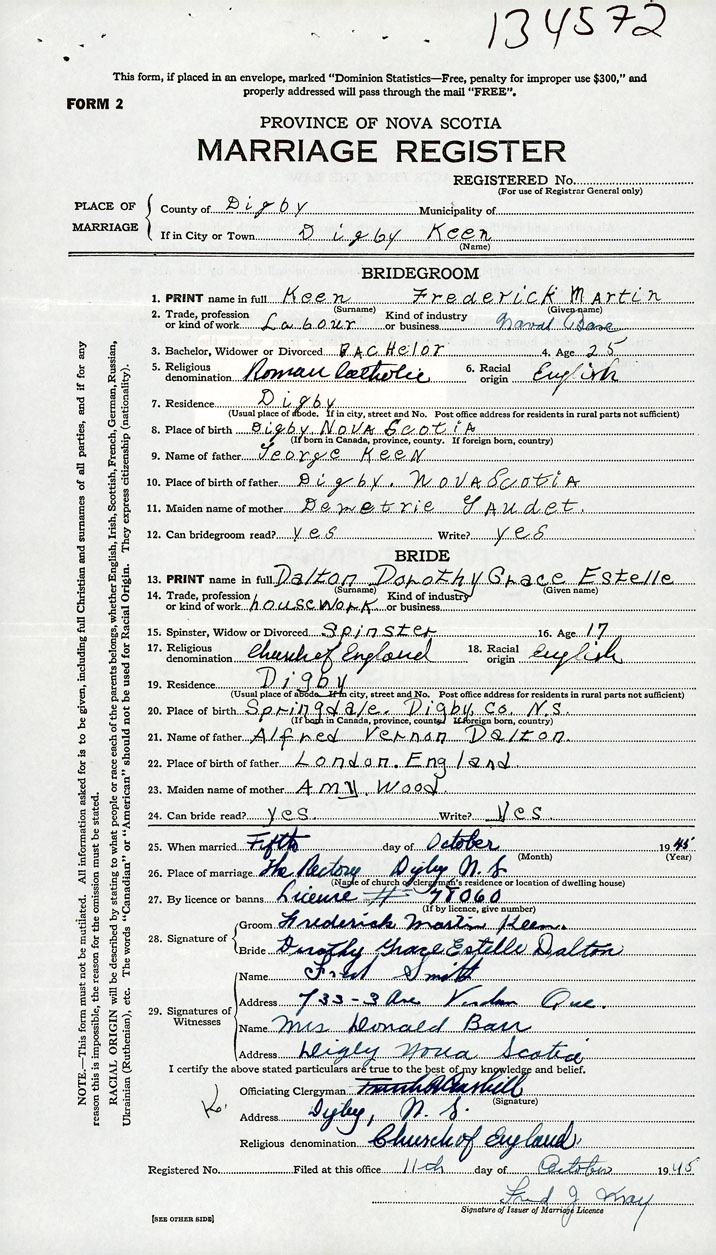 134572
This form, if placed in an envelope, marked "Dominion Statistics—Free, penalty for improper use $300," and
properly addressed will pass through the mail "FREE".
FORM 2
PROVINCE OF NOVA SCOTIA
MARRIAGE REGISTER
REGISTERED No.
(For use of Registrar General only)
PLACE OF MARRIAGE
County of Digby Municipality of
If in City or Town Digby Keen
(Name)
BRIDEGROOM
1. PRINT name in full Keen Frederick Martin
(Surname) (Given name)
2. Trade, profession or kind of work Labour Kind of industry or business Naval Base
3. Bachelor, Widower or Divorced BACHelor 4. Age 25
5. Religious denomination Roman Catholic 6. Racial origin English
7. Residence Digby
(Usual place of abode. If in city, street and No. Post office address for residents in rural parts not sufficient)
8. Place of birth Digby NOVA Scotia
(If born in Canada, province, county. If foreign born, country)
9. Name of father George Keen
10. Place of birth of father Digby. NOVA Scotia
11. Maiden name of mother Demetrie Gaudet.
12. Can bridegroom read? yes Write? yes
BRIDE
13. PRINT name in full Dalton Dorothy Grace Estelle
(Surname) (Given name)
14. Trade, profession or kind of work housework Kind of industry or business
15. Spinster, Widow or Divorced Spinster 16. Age 17
17. Religious denomination Church of England 18. Racial origin English
19. Residence Digby
(Usual place of abode. If in city, street and No. Post office address for residents in rural parts not sufficient)
20. Place of birth Springdale. Digby, Co. N.S.
(If born in Canada, province, county. If foreign born, country)
21. Name of father Alfred Vernon Dalton.
22. Place of birth of father London. England
23. Maiden name of mother Amy. Wood
24. Can bride read? yes. Write? yes.
25. When married Fifth day of October 1945
(Month) (Year)
26. Place of marriage The Rectory Digby N.S
(Name of church or clergyman's residence or location of dwelling house)
27. By licence or banns License # 78060
(If by licence, give number)
28. Signature of
Groom Frederick Martin Keen.
Bride Dorothy Grace Estelle Dalton
29. Signatures of Witnesses
Name Fred Smith
Address 733-3 Ave Verdun Que.
Name Mrs Donald Barr
Address Digby Nova Scotia
I certify the above stated particulars are true to the best of my knowledge and belief.
Officiating Clergyman
(Signature)
Address Digby, N. S.
Religious denomination Church of England
Registered No. Filed at this office 11th day of October 1945
Fred J
Signature of Issuer of Marriage Licence
[SEE OTHER SIDE]
NOTE.—This form must not be mutilated. All information asked for is to be given, including full Christian and surnames of all parties, and if for any
reason this is impossible, the reason for the omission must be stated.
RACIAL ORIGIN will be described by stating to what people or race each of the parents belongs, whether English, Irish, Scottish, French, German, Russian,
Ukrainian (Ruthenian), etc. The words "Canadian" or "American" should not be used for Racial Origin. They express citizenship (nationality).